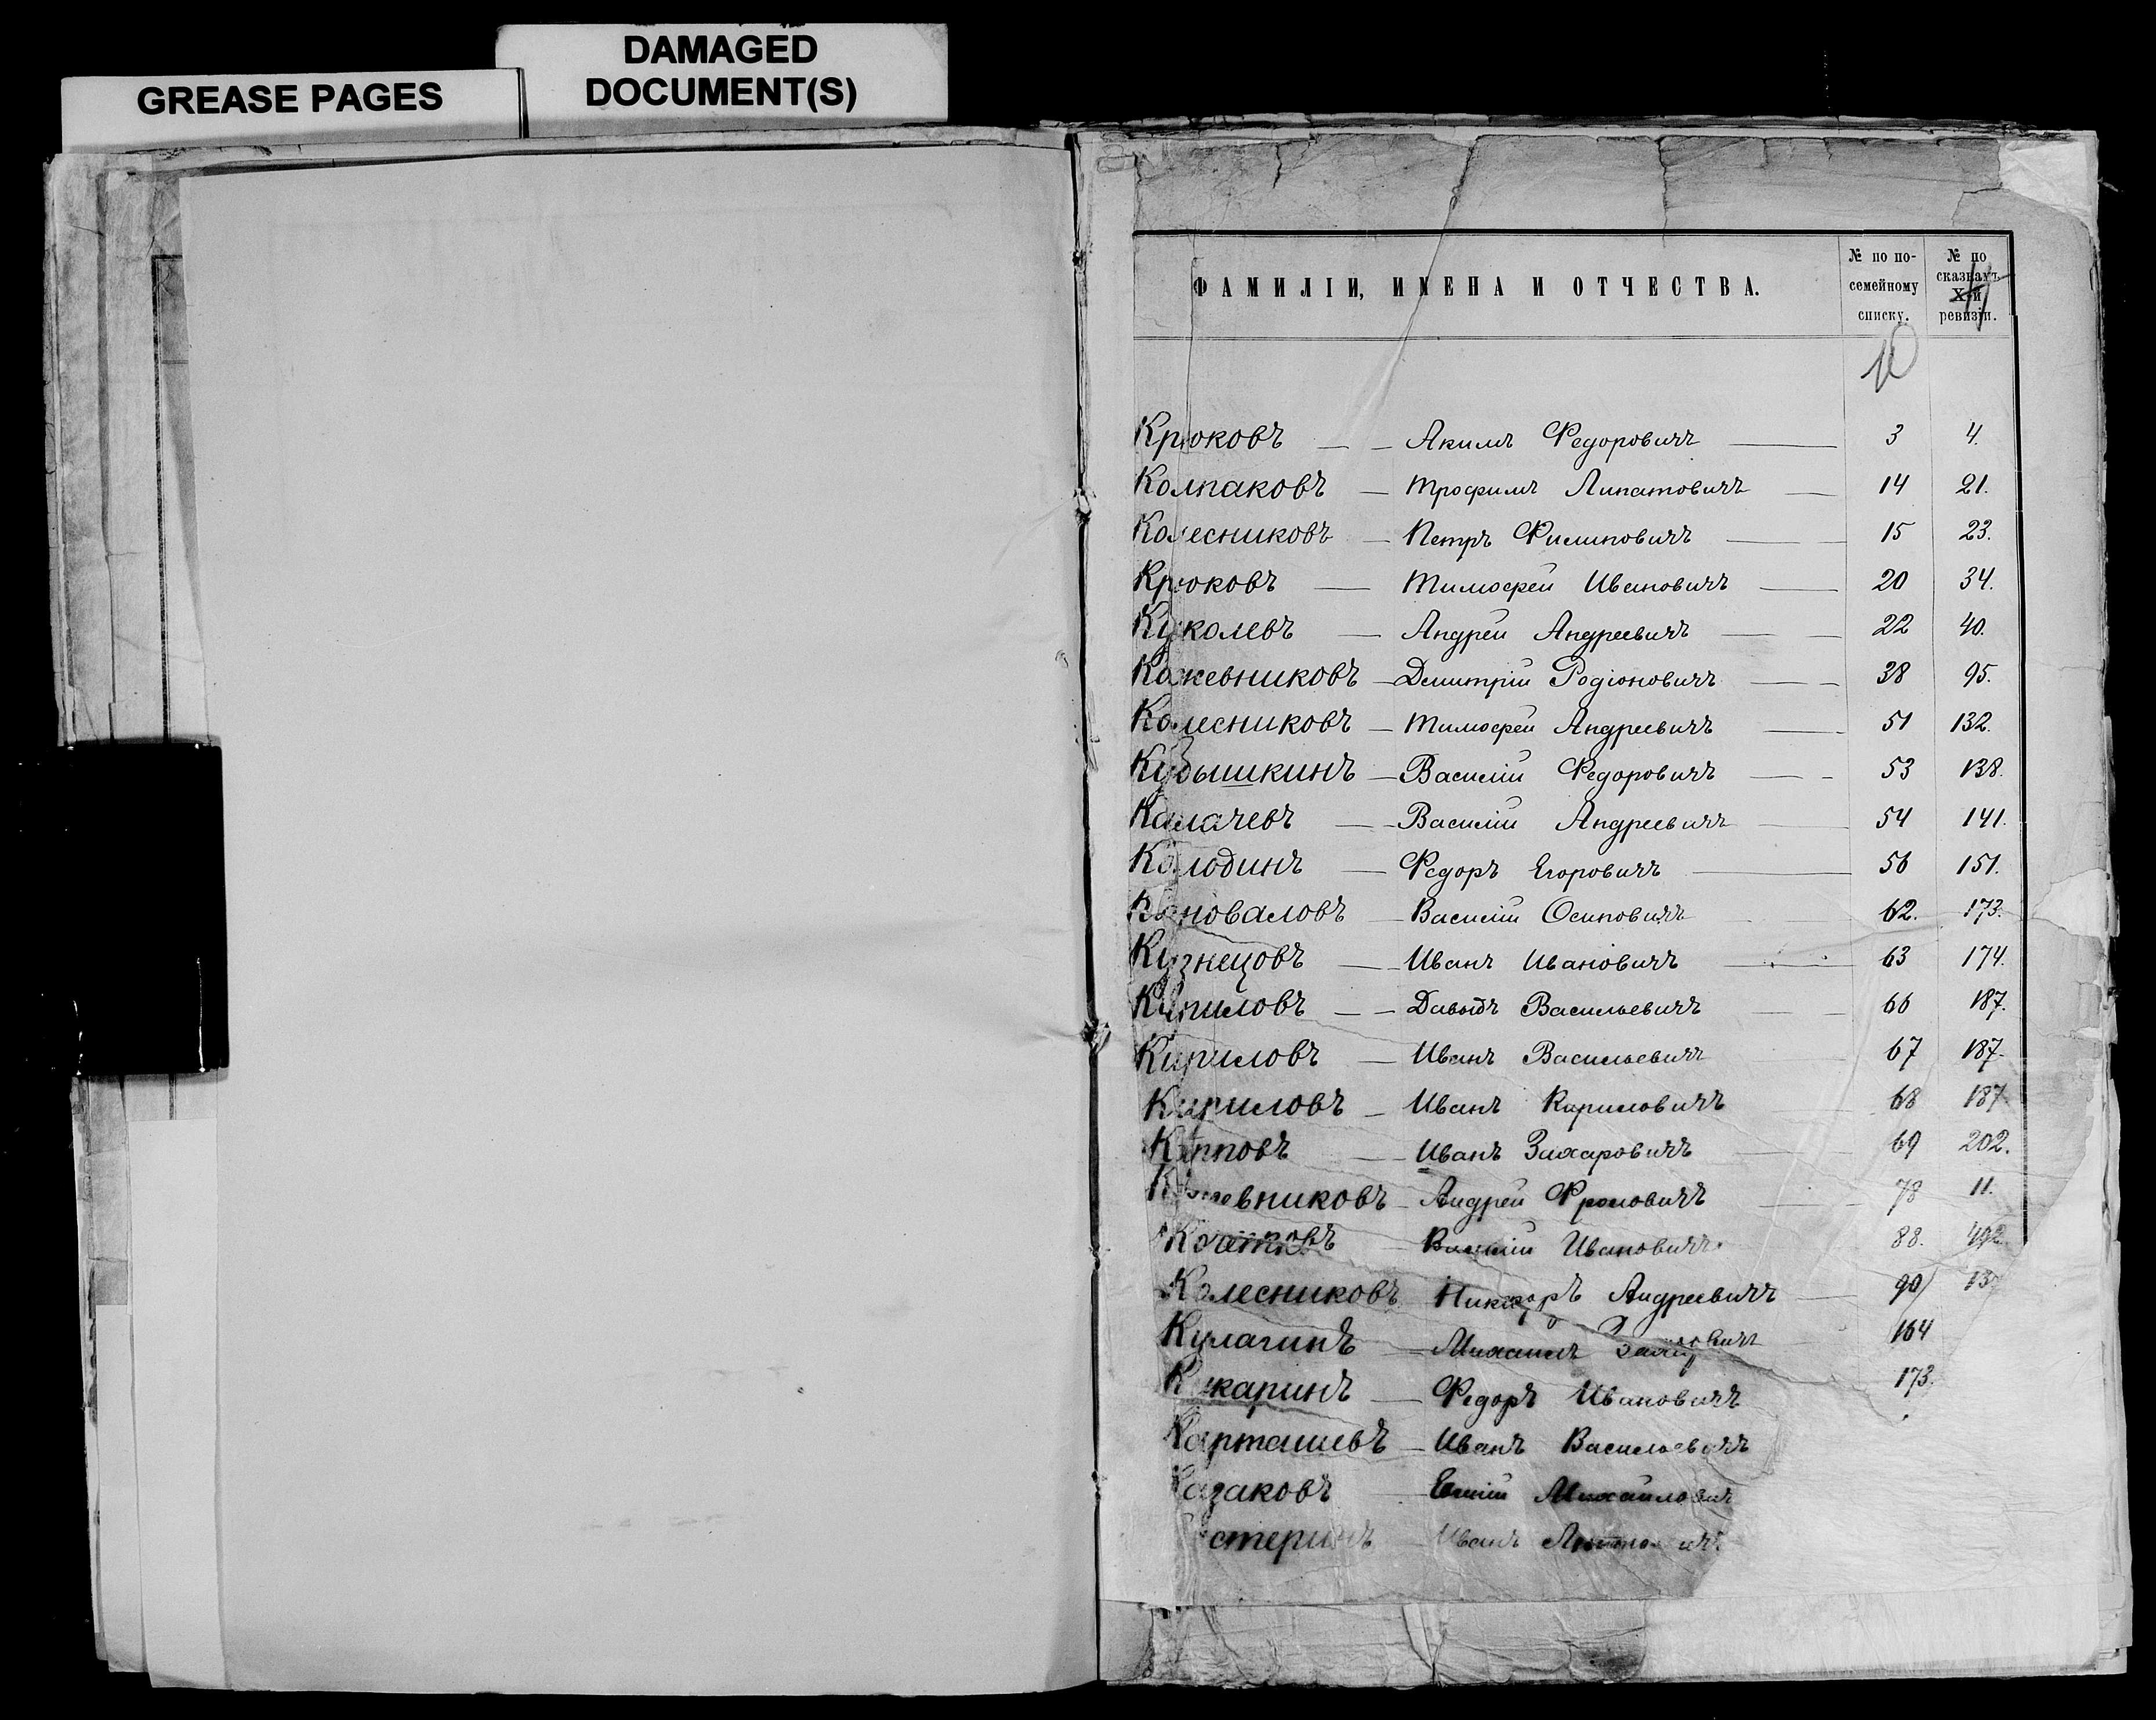 DAMAGED
DOCUMENT(S)
GREASE PAGES
ФАМИЛІИ, ИМЕНА И ОТЧЕСТВА.
№ по по-
семейному
списку.
№ по
сказкахъ
X-й
ревизіи.
Крюковъ — — Акимъ Федоровичъ — 3 4.
Колпаковъ — Трофимъ Липатовичъ — 14 21.
Колесниковъ — Петръ Филиповичъ — 15 23.
Крюковъ — Тимофей Ивановичъ — 20 34.
Куколевъ — Андрей Андреевичъ — 22 40.
Кожевниковъ — Дмитрій Родіоновичъ — 38 95.
Колесниковъ — Тимофей Андреевичъ — 51 132.
Кубышкинъ — Василій Федоровичъ — 53 138.
Калачевъ — Василій Андреевичъ — 54 141.
Колодинъ — Федоръ Егоровичъ — 56 151.
Коноваловъ — Василій Осиповичъ 62. 173.
Кузнецовъ — Иванъ Ивановичъ — 63 174.
Кириловъ — — Давыдъ Васильевичъ — 66 187.
Кириловъ — Иванъ Васильевичъ 67 187.
Кириловъ — Иванъ Кириловичъ 68 187
Карповъ — Иванъ Захаровичъ 69 202.
Кожевниковъ — Андрей Фроловичъ — 78 11.
Кочетковъ — Василій Ивановичъ 88.
Колесниковъ Никифоръ Андреевичъ — 90
Кулагинъ — Михаилъ 164
Федоръ Ивановичъ 173.
Карташевъ — Иванъ Васильевичъ
Казаковъ Михайловичъ
Иванъ